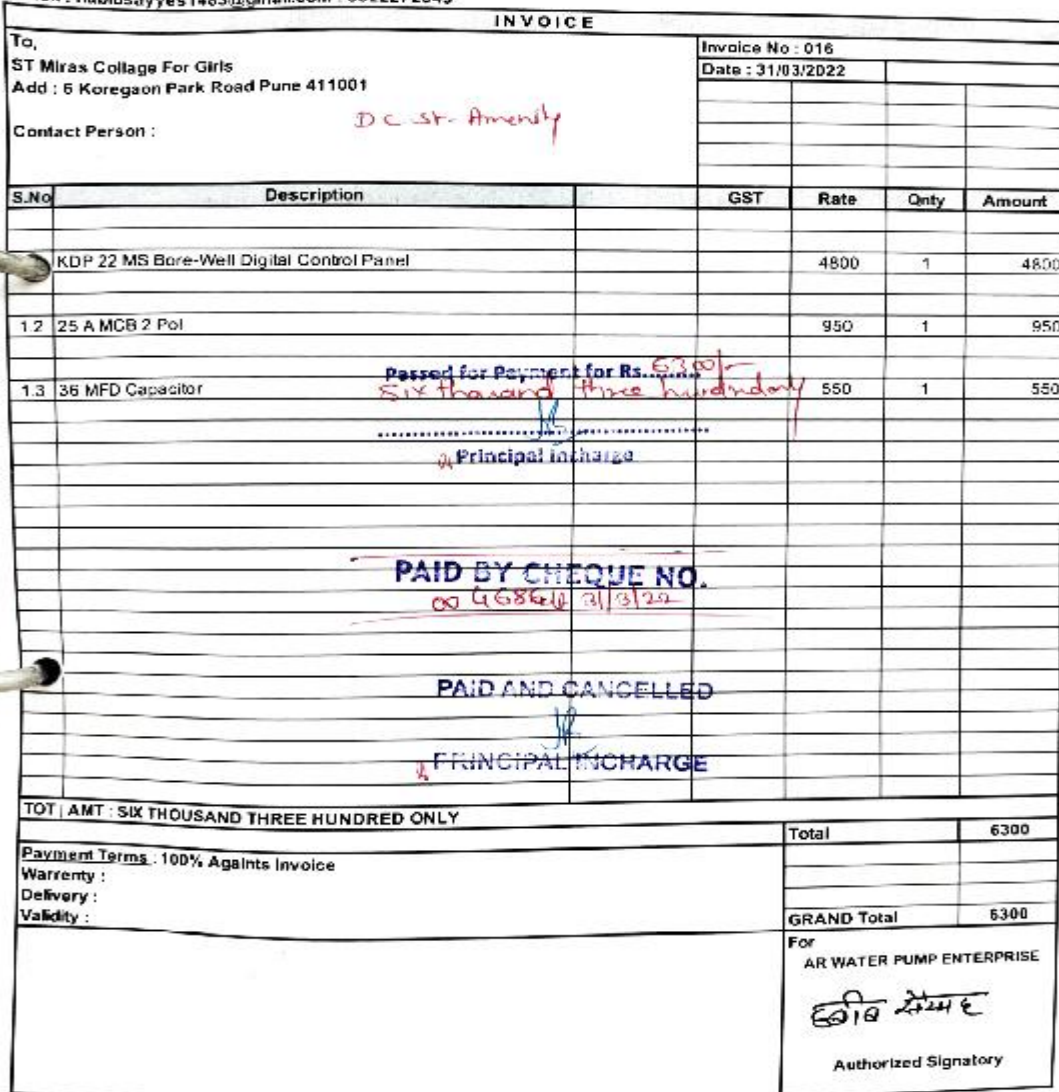 INVOICE
To,
ST Miras Collage For Girls
Add : 6 Koregaon Park Road Pune 411001
Contact Person :
D C St- Amenity
Invoice No : 016
Date : 31/03/2022
S.No Description GST Rate Qnty Amount
KDP 22 MS Bore-Well Digital Control Panel 4800 1 4800
1.2 25 A MCB 2 Pol 950 1 950
Passed for Payment for Rs......... 6300/-
1.3 36 MFD Capacitor 550 1 550
Six thousand three
Principal incharge
PAID BY CHEQUE NO.
31/3/22
PAID AND CANCELLED
PRINCIPAL INCHARGE
TOT AMT : SIX THOUSAND THREE HUNDRED ONLY
Total 6300
Payment Terms : 100% Againts Invoice
Warrenty :
Delivery :
Validity :
GRAND Total 6300
For
AR WATER PUMP ENTERPRISE
Authorized Signatory